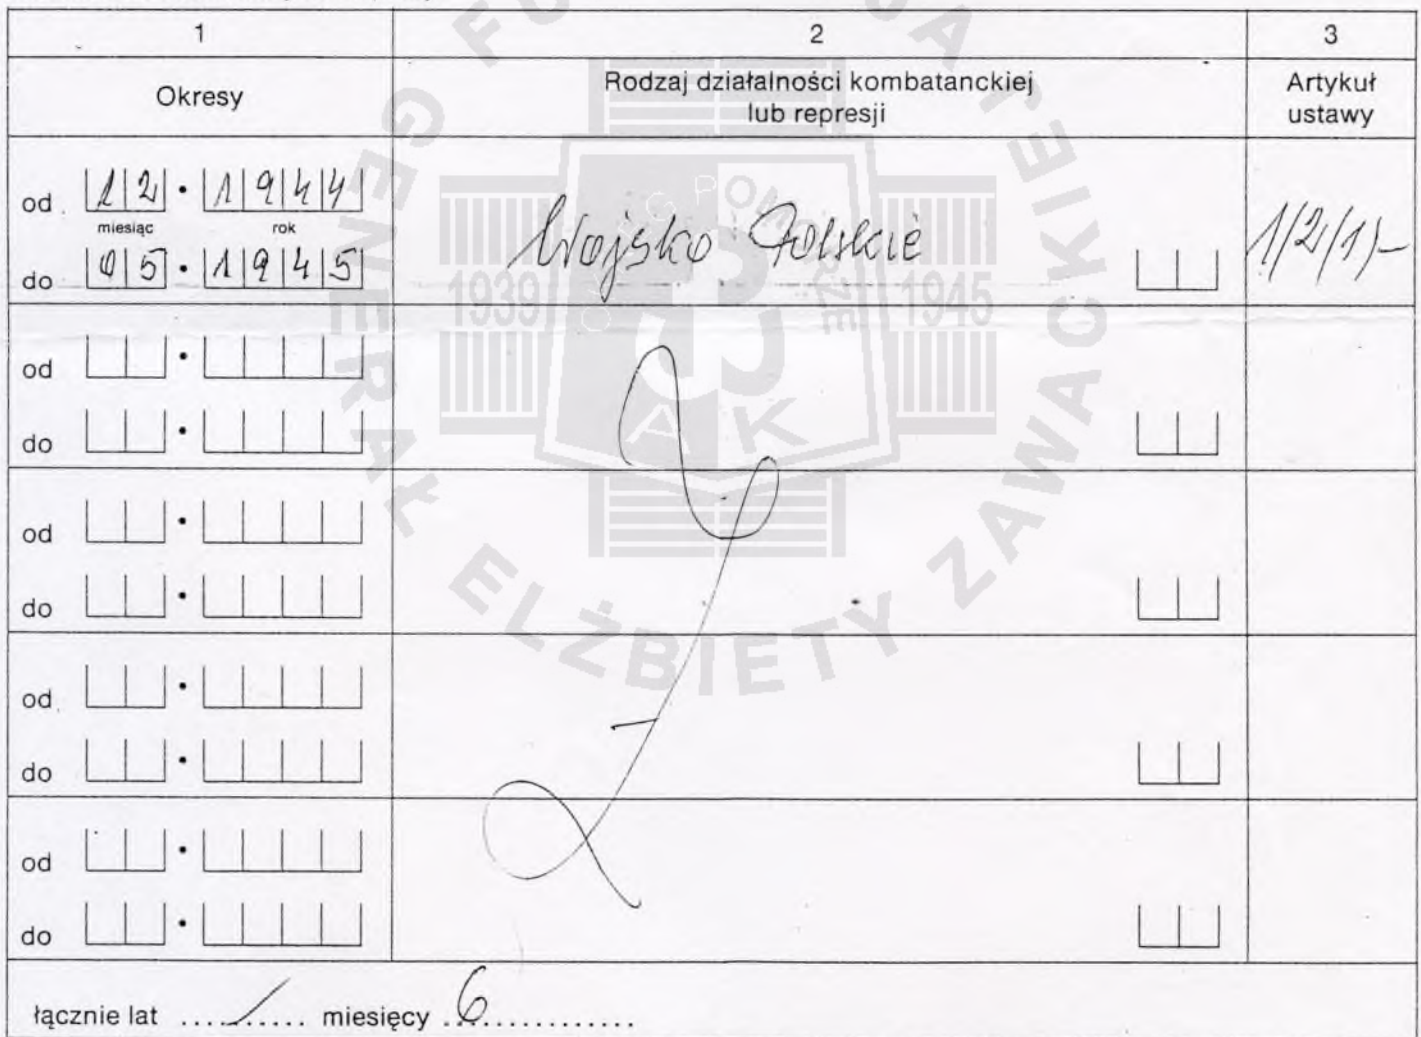 1 2 3
Okresy Rodzaj działalności kombatanckiej Artykuł
lub represji ustawy
od 12 • 1944
miesiąc rok
Wojsko Polskie 1/2/1/-
do 05 • 1945
od •
do •
od •
do •
od •
do •
od •
do •
łącznie lat ..../.... miesięcy .6..............
FUNDACJA GENERAŁ ELŻBIETY ZAWACKIEJ
1939 1945
AK